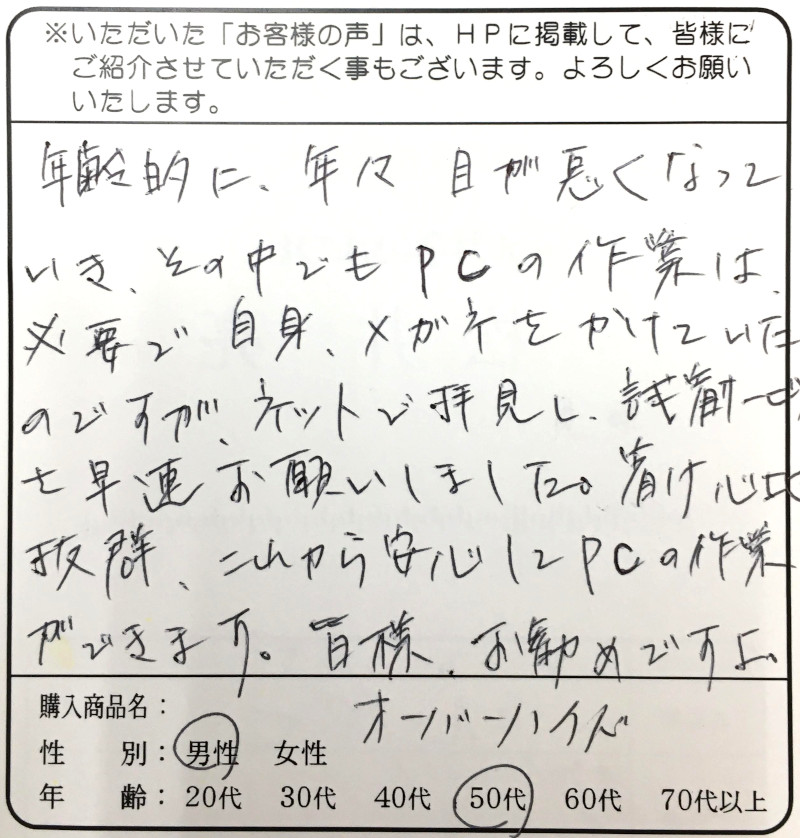 ※いただいた「お客様の声」は、HPに掲載して、皆様に
ご紹介させていただく事もございます。よろしくお願い
いたします。
年齢的に、年々目が悪くなって
いき、その中でもPCの作業は、
必要で自身、メガネをかけていた
のですが、ネットで拝見し、試着
を早速お願いしました。着け心地
抜群、これから安心してPCの作業
ができます。皆様、お勧めですよ。
購入商品名: オーバーハイズ
性 別:男性 女性
年 齢:20代 30代 40代 50代 60代 70代以上